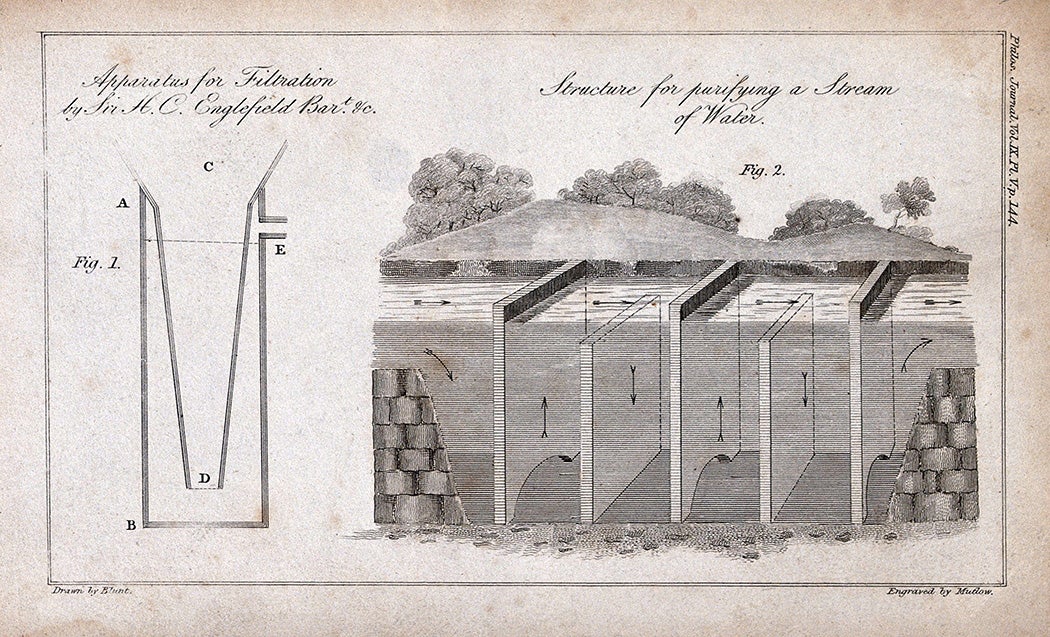 Philos. Journal, Vol. IX. Pl. V. p. 144.
Apparatus for Filtration
by Sir H. C. Englefield Bar.t &c.
Structure for purifying a Stream
of Water.
Fig. 2.
C
A
E
Fig. 1.
D
B
Drawn by Blunt.
Engraved by Mutlow.